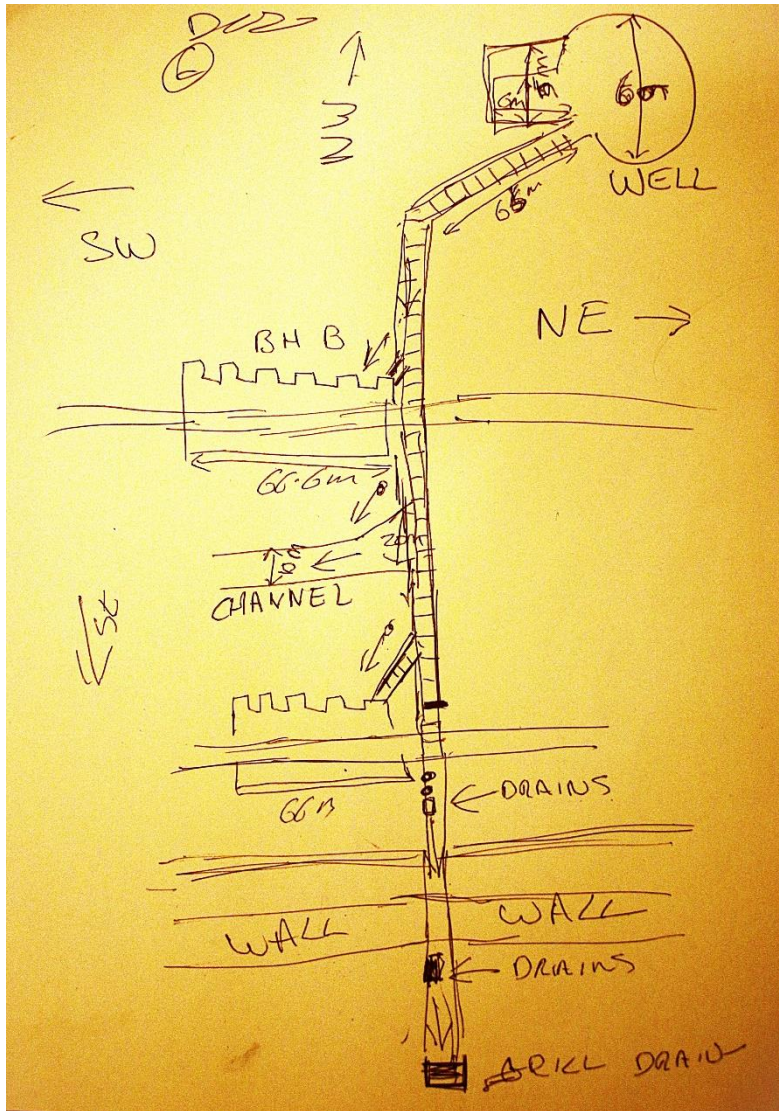 6
NW
6m
WELL
66m
SW
NE
BH B
66.6m
20m
6m
CHANNEL
SE
66m
DRAINS
WALL
WALL
DRAINS
GRILL DRAIN